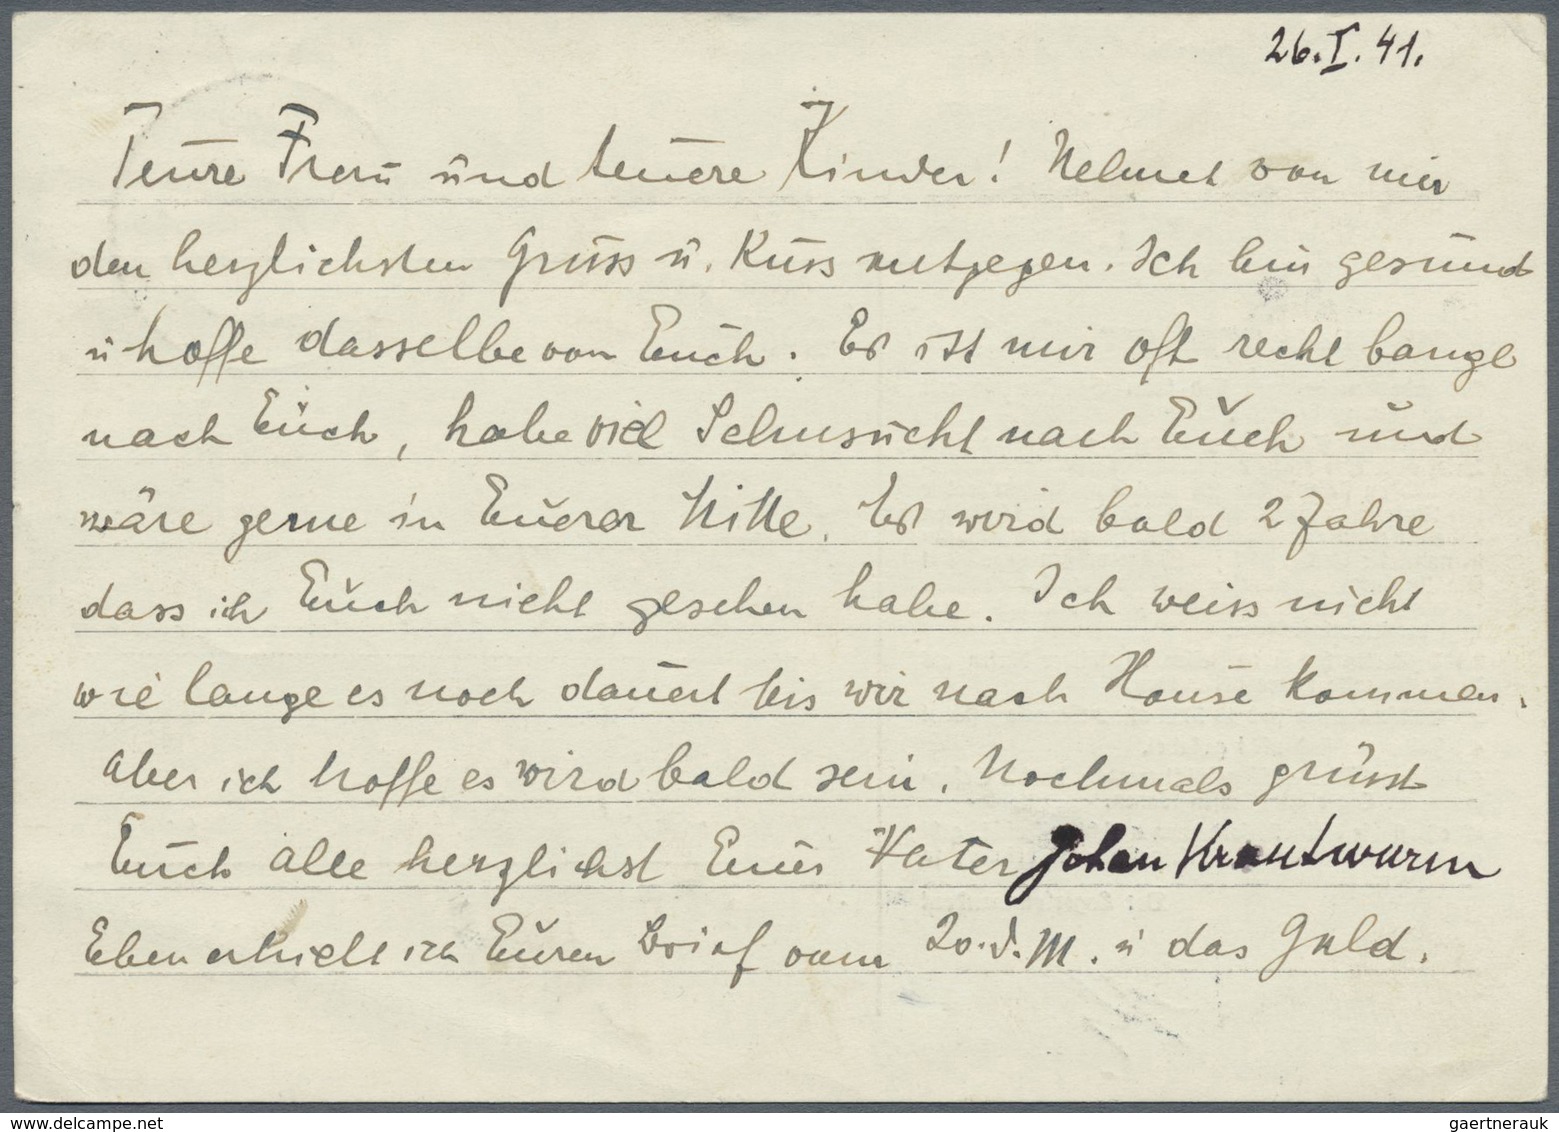 26.I.41.
Teure Frau und teuere Kinder! Nehmet von mir
den herzlichsten Gruss u. Kuss entgegen. Ich bin gesund
u hoffe dasselbe von Euch. Es ist mir oft recht bange
nach Euch, habe viel Sehnsucht nach Euch und
wäre gerne in Euerer Mitte. Es wird bald 2 Jahre
dass ich Euch nicht gesehen habe. Ich weiss nicht
wie lange es noch dauert bis wir nach Hause kommen.
Aber ich hoffe es wird bald sein. Nochmals grüsst
Euch alle herzlichst Euer Vater Johan Krautwurm
Eben erhielt ich Euren Brief vom 20.d.M. u das Geld.
gaertnerauk
delcampe.net